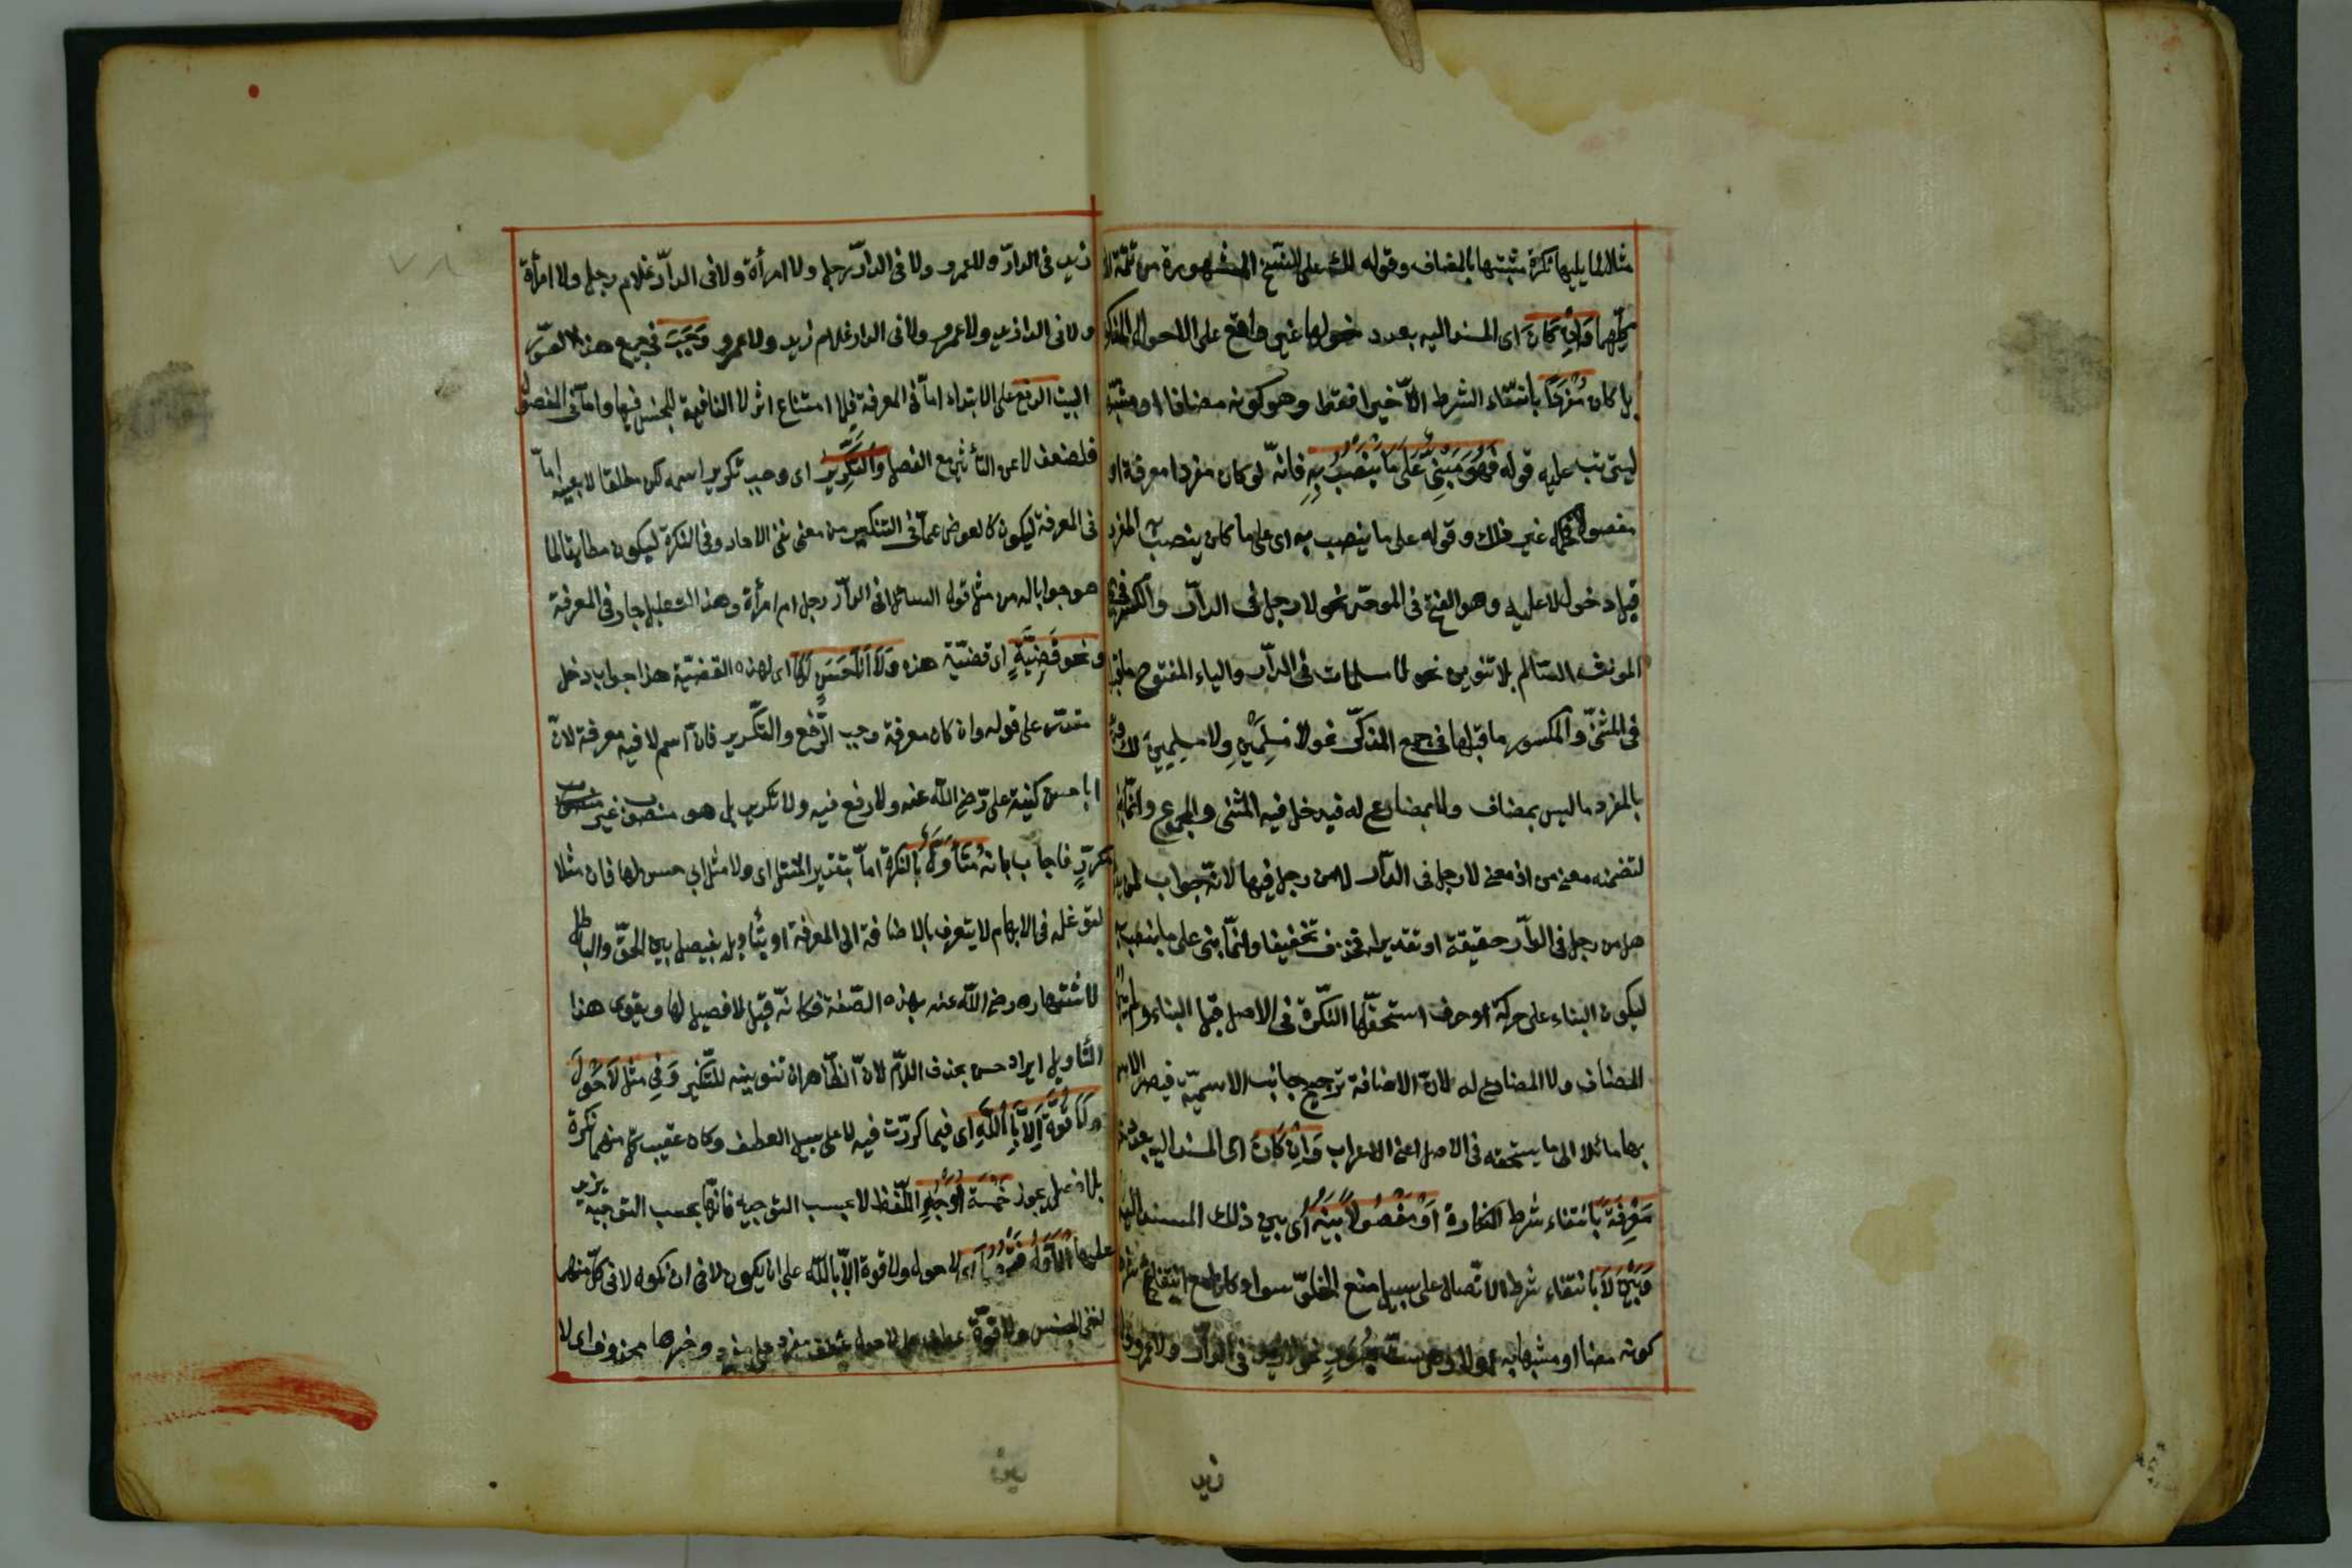 مثالا لما يليها نكرة مشبها بالمضاف وقوله لك على النسخ المشهورة من تتمة
كليهما وَاِنْ كَانَ اى المسند اليه بعد دخولها غير واقع على الاحوال المذكورة
بل كان مُفْرَدًا بانتفاء الشرط الاخير فقط وهو كونه مضافا او مشبها
ليترتب عليه قوله فَهُوَ مَبْنِىٌّ عَلَى مَا يُنْصَبُ بِهِ فانه لو كان مفردا معرفة او
مفصولا غير ذلك وقوله على ما ينصب به اى على ما كان ينصب به المفرد
قبل دخول لا عليه وهو الفتح فى الموحد نحو لا رجل فى الدار والكسر فى جمع
المونث السالم بلا تنوين نحو لا مسلمات فى الدار والياء المفتوح ما قبلها
فى المثنى والمكسور ما قبلها فى جمع المذكر نحو لا مُسْلِمَيْنِ ولا مسلِمِينَ لك
بالمفرد ما ليس بمضاف ولا بمضارع له فيدخل فيه المثنى والمجموع وانما
لتضمنه معنى من اذ معنى لا رجل فى الدار لا من رجل فيها لانه جواب
هل من رجل فى الدار حقيقة او تقديرا فحذف تخفيفا وانما بنى على ما ينصب به
ليكون البناء على حركة او حرف استحقها النكرة فى الاصل قبل البناء ولم
المضاف ولا المضارع له لان الاضافة ترجح جانب الاسمية فيصير الاسم
بها مائلا الى ما يستحقه فى الاصل اعنى الاعراب وَاِنْ كَانَ اى المسند اليه بعد
مَعْرِفَةً بانتفاء شرط النكارة اَوْ مَفْصُولًا بَيْنَهُ اى بين ذلك المسند اليه
وَبَيْنَ لَا بانتفاء شرط الاتصال على سبيل منع الخلو سواء كان مع انتفاء شرط
كونه مضافا او مشبها به اولا نحو لا زيد فى الدار ولا عمرو
زيد
زيد فى الدار ولا عمرو ولا فى الدار رجل ولا امرأة ولا فى الدار غلام رجل ولا امرأة
ولا فى الدار زيد ولا عمرو ولا فى الدار غلام زيد ولا عمرو وَجَبَ فى جميع هذه الصور
البتة الرفع على الابتداء اما فى المعرفة فلامتناع اثر لا النافية للجنس فيها واما فى المفصول
فلضعف لا عن التأثير مع الفصل وَالتَّكْرِيرُ اى وجب تكرير اسمه لكن مطلقا لا بعينه اما
فى المعرفة ليكون كالعوض عما فى التنكير من معنى نفى الاحاد وفى النكرة ليكون مطابقا لما
هو جواب له من مثل قول السائل افى الدار رجل ام امرأة وهذا التعليل جار فى المعرفة
ونحو قَضِيَّةٍ اى قضية هذه وَلَا اَبَا حَسَنٍ لَهَا اى لهذه القضية هذا جواب دخل
مقدر على قوله وان كان معرفة وجب الرفع والتكرير فان اسم لا فيه معرفة لان
ابا حسن كنية على رضى الله عنه ولا رفع فيه ولا تكرير بل هو منصوب غير
مكرر فاجاب بانه مُتَأَوَّلٌ بالنكرة اما بتقدير المثل اى ولا مثل ابى حسن لها فان مثلا
لتوغله فى الابهام لا يتعرف بالاضافة الى المعرفة او بتأويله بفيصل بين الحق والباطل
لاشتهاره رضى الله عنه بهذه الصفة فكانه قيل لا فيصل لها ويقوى هذا
التأويل ايراد حسن بحذف اللام لان الظاهر ان تنوينه للتنكير وَفِى مثل لَا حَوْلَ
وَلَا قُوَّةَ اِلَّا بِاللّٰهِ اى فيما كررت فيه لا على سبيل العطف وكان عقيب كل منهما نكرة
بلا فصل يجوز خَمْسَةُ اَوْجُهٍ اللفظ لا بحسب التوجيه فانها بحسب التوجيه يزيد
عليها الاول اى لا حول ولا قوة الا بالله على ان يكون لا فى كل منهما
لنفى الجنس ولا قوة عطف على لا حول عطف مفرد على مفرد وخبرها محذوف اى لا